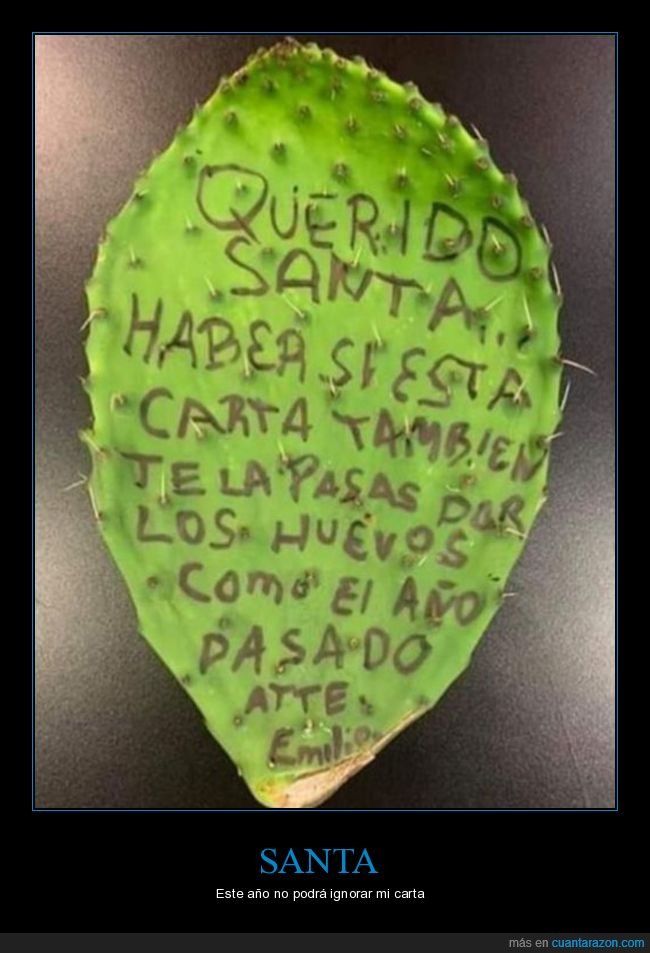 QUERIDO
SANTA...
HABER SI ESTA
CARTA TAMBIEN
TE LA PASAS POR
LOS HUEVOS
COMO El AÑO
PASADO
ATTE.
Emilio
SANTA
Este año no podrá ignorar mi carta
más en cuantarazon.com